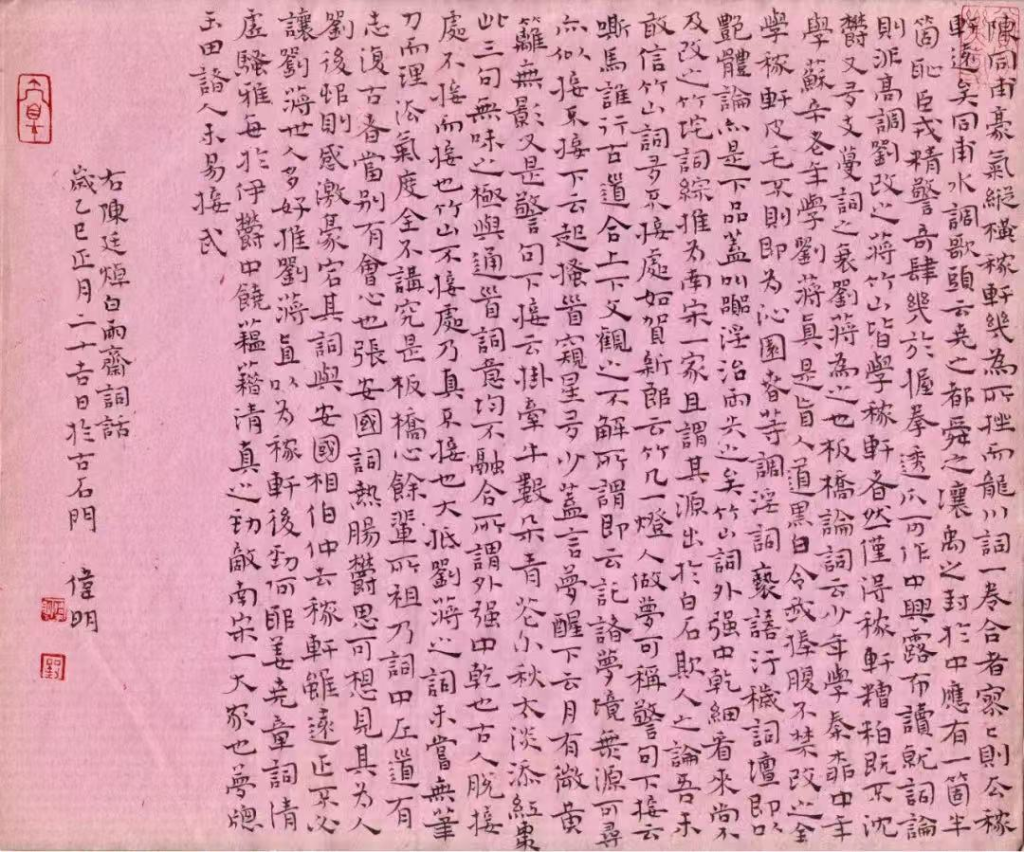 陳同甫豪氣縱橫稼軒幾為所挫而龍川詞一卷合者寥〻則去稼
軒遠矣同甫水調歌頭云堯之都舜之壤禹之封於中應有一箇半
箇恥臣戎精警奇肆幾於握拳透爪可作中興露布讀就詞論
則非高調劉改之蔣竹山皆學稼軒者然僅得稼軒糟粕既不沈
鬱又多支蔓詞之衰劉蔣為之也板橋論詞云少年學秦柳中年
學蘇辛老年學劉蔣真是盲人道黑白令我捧腹不禁改之全
學稼軒皮毛不則即為沁園春等調淫詞褻語污穢詞壇即以
艷體論亦是下品蓋叫囂浮冶兩失之矣竹山詞外强中乾細看來尚不
及改之竹垞詞綜推為南宋一家且謂其源出於白石欺人之論吾未
敢信竹山詞多不接處如賀新郎云竹几一燈人做夢可稱警句下接云
嘶馬誰行古道合上下文觀之不解所謂即云託諸夢境無源可尋
亦似接不接下云起搔首窺星多少蓋言夢醒下云月有微黃
籬無影又是警句下接云掛牽牛數朵青花小秋太淡添紅棗
此三句無味之極與通首詞意均不融合所謂外强中乾也古人脫接
處不接而接也竹山不接處乃真不接也大抵劉蔣之詞未嘗無筆
力而理法氣度全不講究是板橋心餘輩所祖乃詞中左道有
志復古者當別有會心也張安國詞熱腸鬱思可想見其為人
劉後邨則感激豪宕其詞與安國相伯仲去稼軒雖遠正不必
讓劉蔣世人多好推劉蔣直以為稼軒後勁何耶姜堯章詞清
虛騷雅每於伊鬱中饒蘊藉清真之勁敵南宋一大家也夢牕
玉田諸人未易接武
右陳廷焯白雨齋詞話
歲乙巳正月二十吉日於古石門 偉明